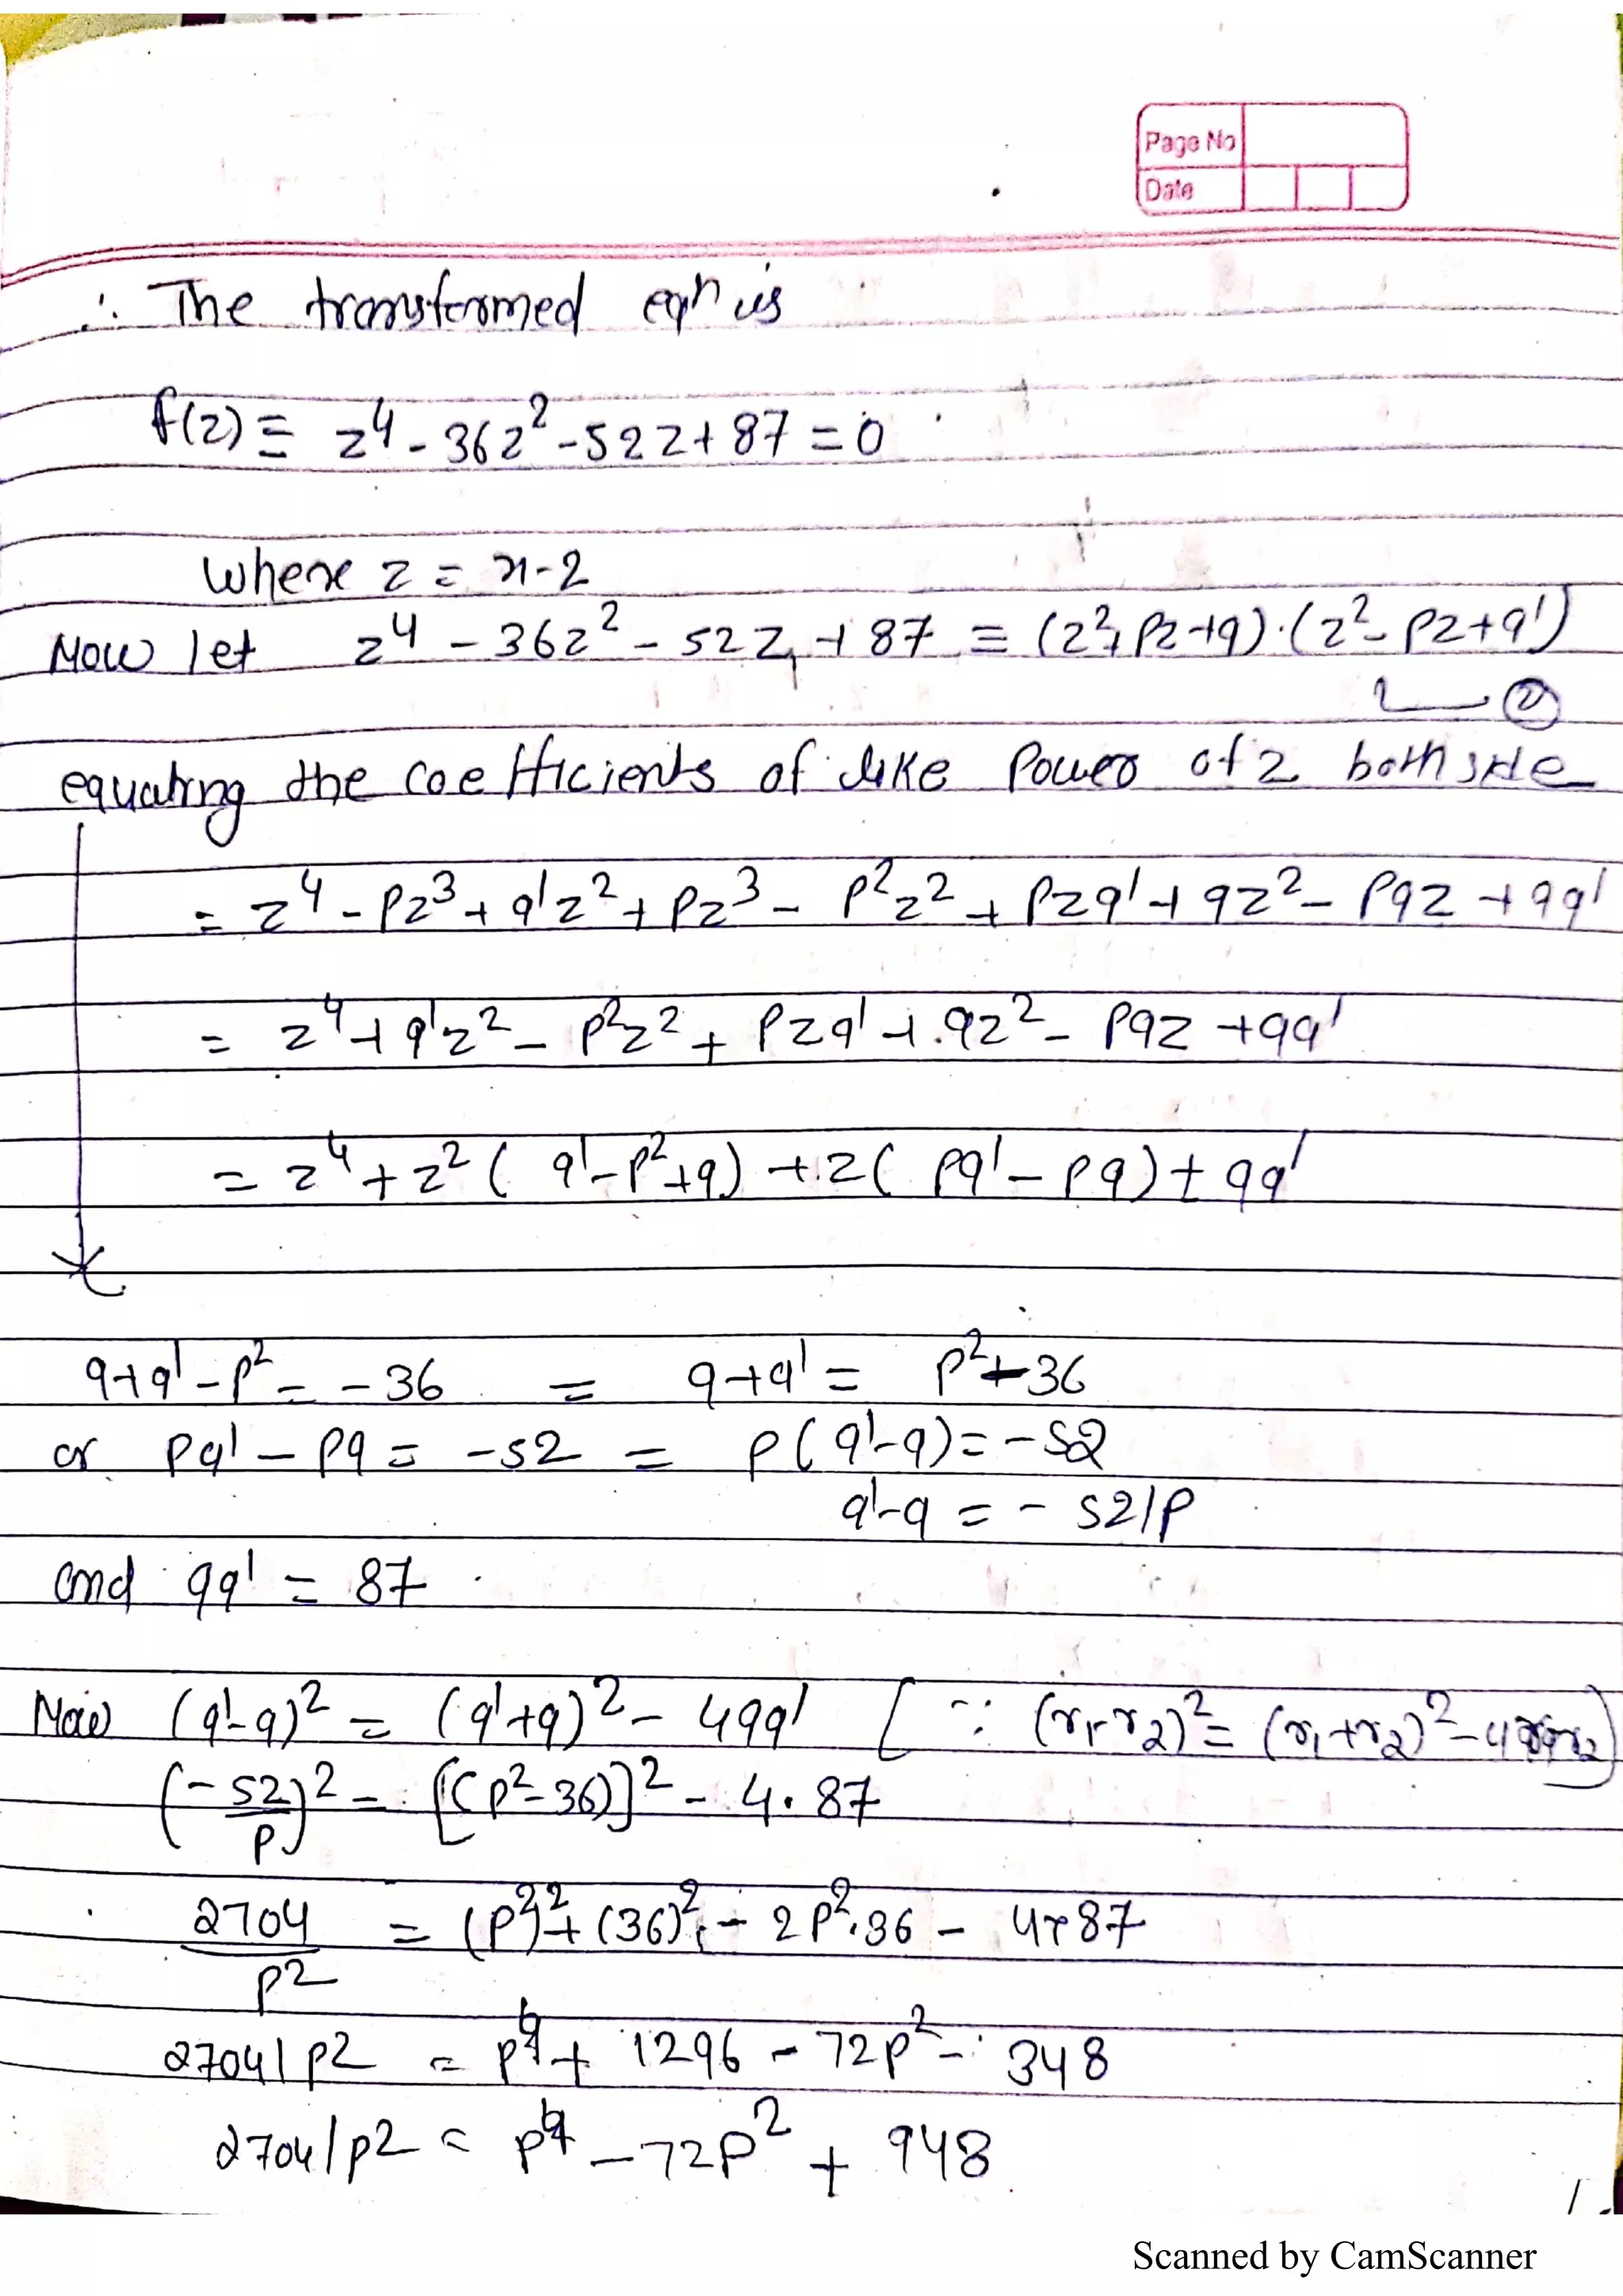 Page No
Date
∴ The transformed eqn is
f(z) ≡ z⁴ - 36z² - 52z + 87 = 0
where z = x-2
Now let z⁴ - 36z² - 52z + 87 = (z²+pz+q).(z²-pz+q')
②
equating the coefficients of like Power of z both side
= z⁴ - pz³ + q'z² + pz³ - p²z² + pzq' + qz² - pqz + qq'
= z⁴ + q'z² - p²z² + pzq' + qz² - pqz + qq'
= z⁴ + z² ( q' - p² + q) + z ( pq' - pq) + qq'
q+q' - p² = - 36 = q+q' = p²+36
or pq' - pq = -52 = p(q'-q) = -52
q'-q = - 52/p
and qq' = 87
Now (q'-q)² = (q'+q)² - 4qq' [ ∵ (r₁-r₂)² = (r₁+r₂)² - 4r₁r₂]
(-52/p)² = [(p²-36)]² - 4.87
2704/p² = (p²)² + (36)² - 2p².36 - 4×87
2704/p2 = p⁴ + 1296 - 72p² - 348
2704/p2 = p⁴ - 72p² + 948
Scanned by CamScanner